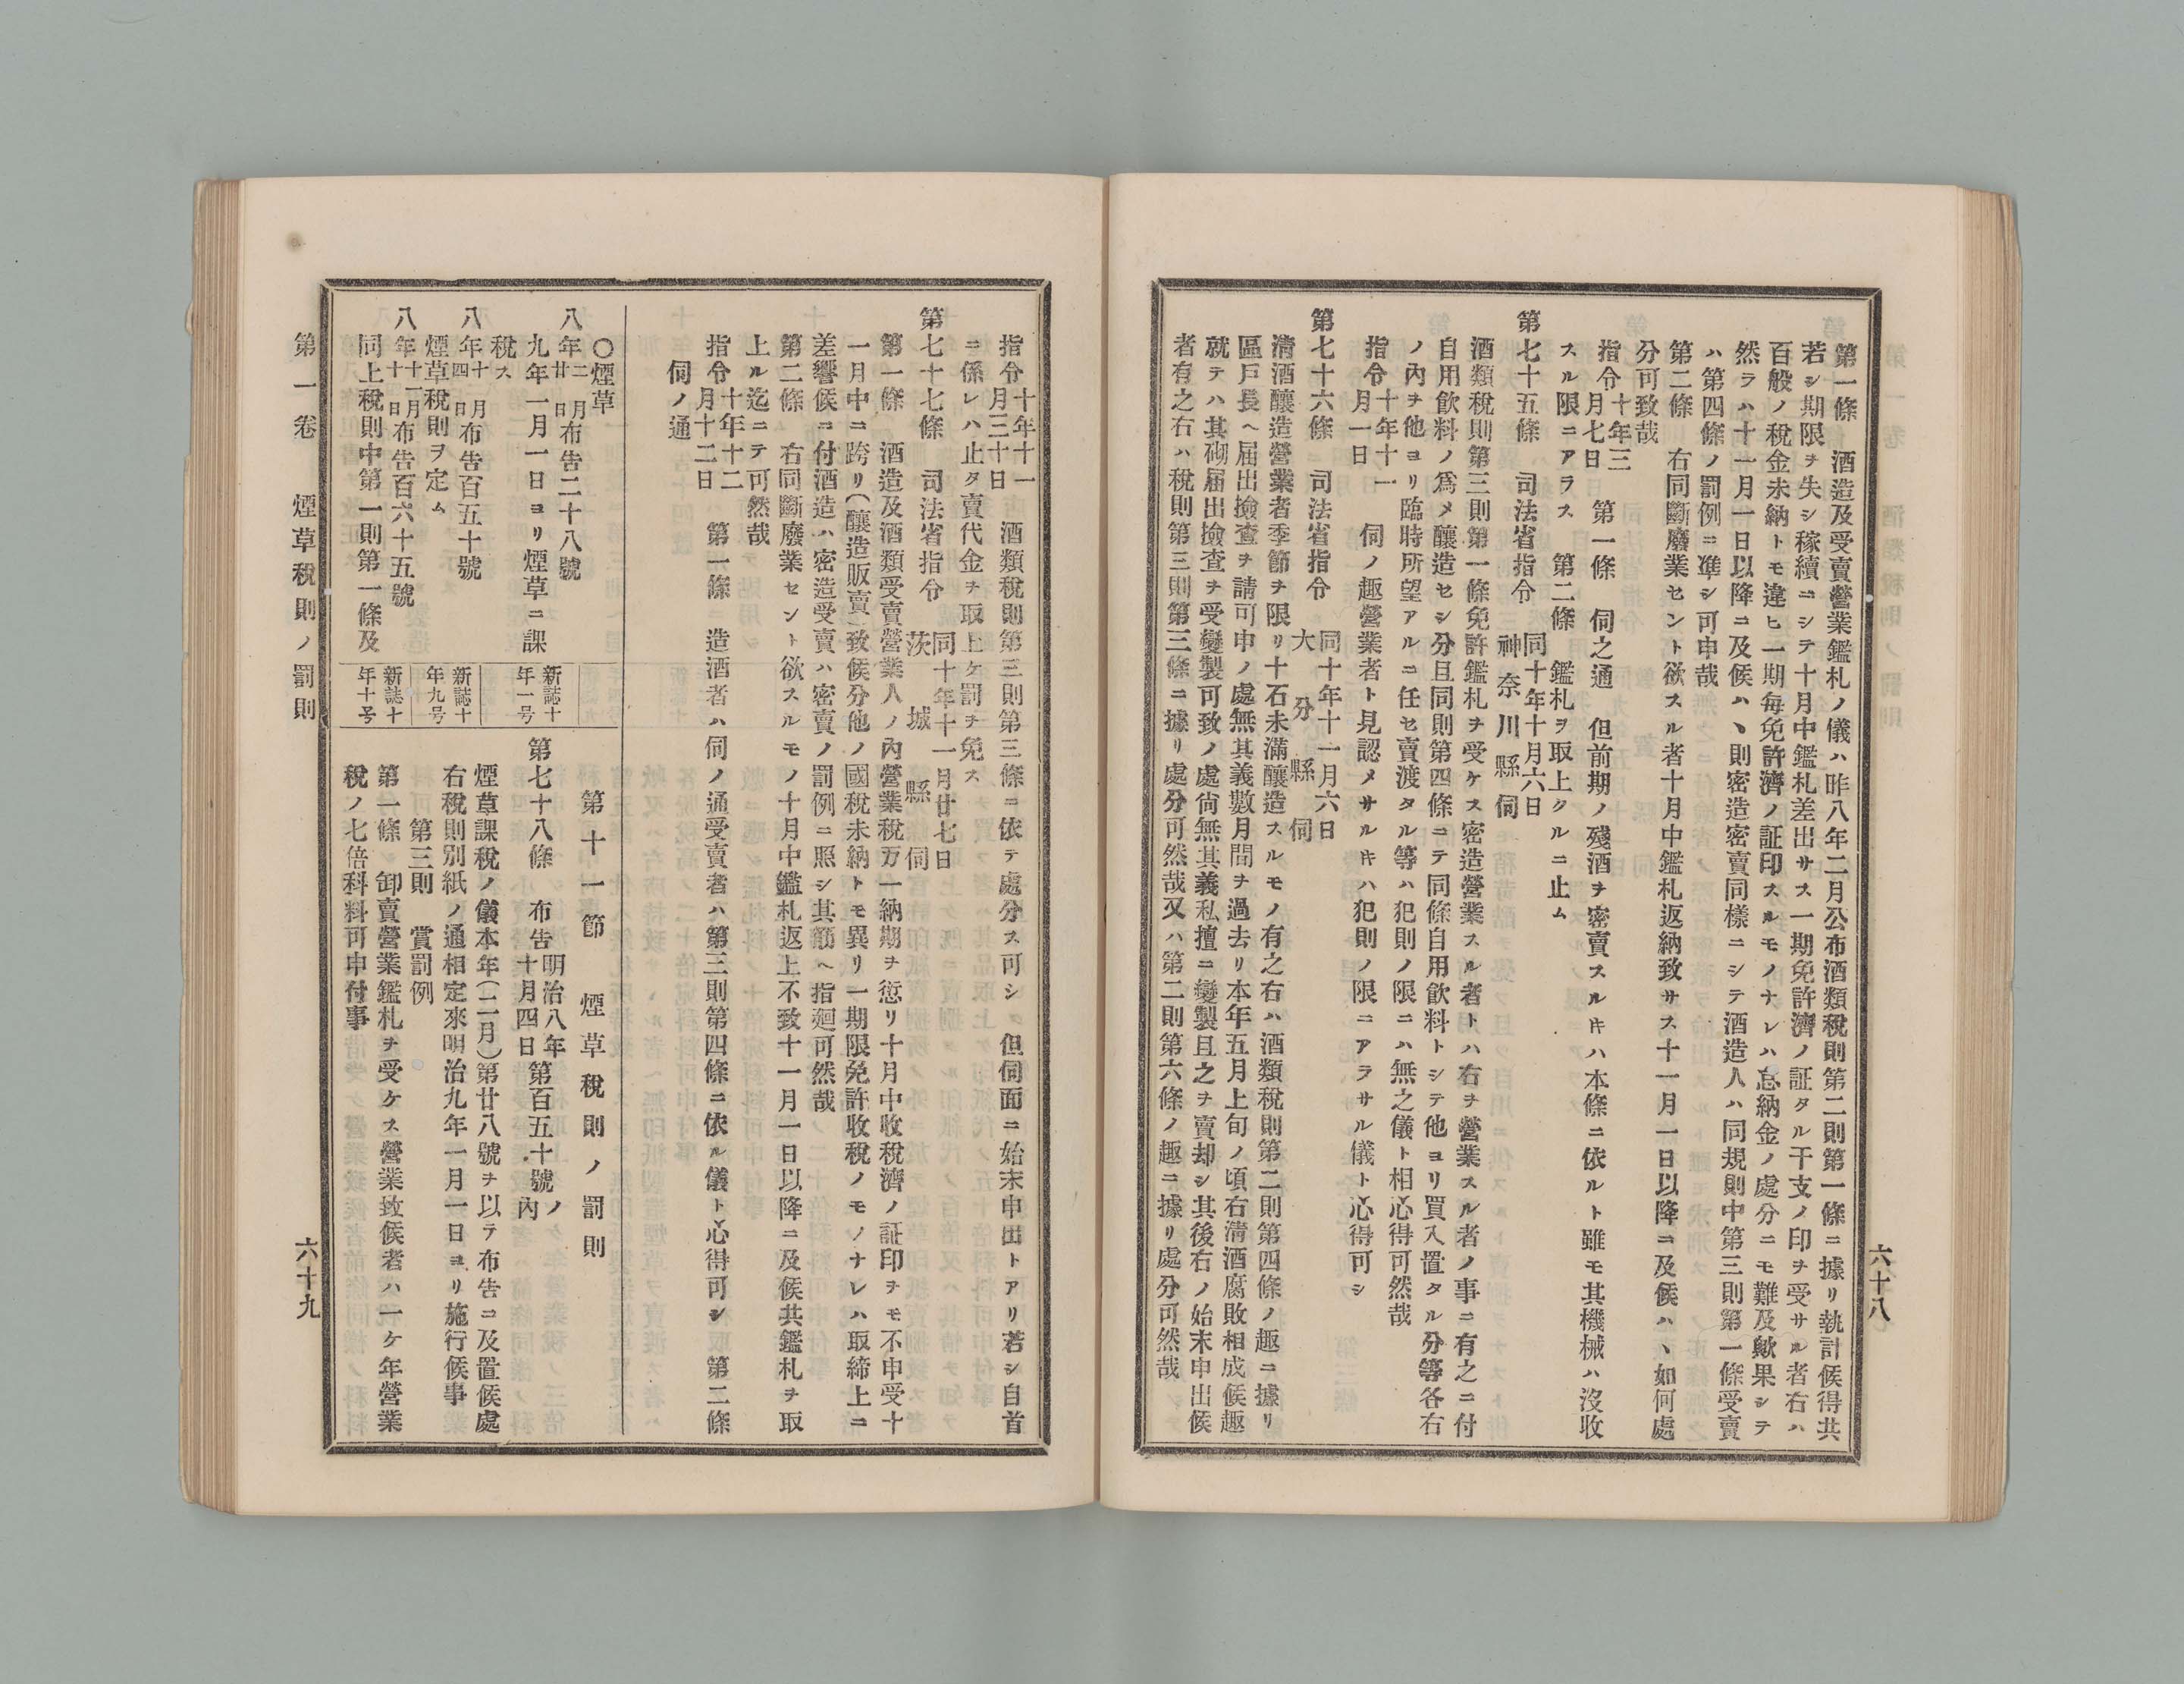 六十八
第一條　酒造及受賣營業鑑札ノ儀ハ昨八年二月公布酒類稅則第二則第一條ニ據リ執計候得共
若シ期限ヲ失シ稼續ニシテ十月中鑑札差出サス一期免許濟ノ証タル干支ノ印ヲ受サル者右ハ
百般ノ稅金未納トモ違ヒ一期每免許濟ノ証印スルモノナレハ怠納金ノ處分ニモ難及歟果シテ
然ラハ十一月一日以降ニ及候ハヽ則密造密賣同樣ニシテ酒造人ハ同規則中第三則第一條受賣
ハ第四條ノ罰例ニ準シ可申哉
第二條　右同斷廢業セント欲スル者十月中鑑札返納致サス十一月一日以降ニ及候ハヽ如何處
分可致哉
指令十年三月七日　第一條　伺之通　但前期ノ殘酒ヲ密賣スルキハ本條ニ依ルト雖モ其機械ハ沒收
スル限ニアラス　第二條　鑑札ヲ取上クルニ止ム
第七十五條　司法省指令　同十年十月六日　神奈川縣伺
酒類稅則第三則第一條免許鑑札ヲ受ケス密造營業スル者トハ右ヲ營業スル者ノ事ニ有之ニ付
自用飮料ノ爲メ釀造セシ分且同則第四條ニテ同條自用飮料トシテ他ヨリ買入置タル分等各右
ノ內ヲ他ヨリ臨時所望アルニ任セ賣渡タル等ハ犯則ノ限ニハ無之儀ト相心得可然哉
指令十年十一月一日　伺ノ趣營業者ト見認メサルキハ犯則ノ限ニアラサル儀ト心得可シ
第七十六條　司法省指令　同十年十一月六日　大分縣伺
淸酒釀造營業者季節ヲ限リ十石未滿釀造スルモノ有之右ハ酒類稅則第二則第四條ノ趣ニ據リ
區戶長ヘ届出撿查ヲ請可申ノ處無其義數月間ヲ過去リ本年五月上旬ノ頃右淸酒腐敗相成候趣
就テハ其砌届出撿查ヲ受變製可致ノ處尙無其義私擅ニ變製且之ヲ賣却シ其後右ノ始末申出候
者有之右ハ稅則第三則第三條ニ據リ處分可然哉又ハ第二則第六條ノ趣ニ據リ處分可然哉
指令十年十一月三十日　酒類稅則第三則第三條ニ依テ處分ス可シ　但伺面ニ始末申出トアリ若シ自首
ニ係レハ止タ賣代金ヲ取上ケ罰ヲ免ス
第七十七條　司法省指令　同十年十一月廿七日　茨城縣伺
第一條　酒造及酒類受賣營業人ノ內營業稅万一納期ヲ愆リ十月中收稅濟ノ証印ヲモ不申受十
一月中ニ跨リ(釀造販賣)致候分他ノ國稅未納トモ異リ一期限免許收稅ノモノナレハ取締上ニ
差響候ニ付酒造ハ密造受賣ハ密賣ノ罰例ニ照シ其筋ヘ指廻可然哉
第二條　右同斷廢業セント欲スルモノ十月中鑑札返上不致十一月一日以降ニ及候共鑑札ヲ取
上ル迄ニテ可然哉
指令十年十二月十二日　第一條　造酒者ハ伺ノ通受賣者ハ第三則第四條ニ依ル儀ト心得可シ　第二條
伺ノ通
〇煙草
八年二月廿日布告二十八號
九年一月一日ヨリ煙草ニ課
稅ス
新誌十年一号
八年十月四日布告百五十號
煙草稅則ヲ定ム
新誌十年九号
八年十一月十日布告百六十五號
同上稅則中第一則第一條及
新誌十年十号
第十一節　煙草稅則ノ罰則
第七十八條　布告明治八年十月四日第百五十號ノ內
煙草課稅ノ儀本年(二月)第廿八號ヲ以テ布告ニ及置候處
右稅則別紙ノ通相定來明治九年一月一日ヨリ施行候事
第三則　賞罰例
第一條　卸賣營業鑑札ヲ受ケス營業致候者ハ一ケ年營業
稅ノ七倍科料可申付事
第一卷　煙草稅則ノ罰則
六十九